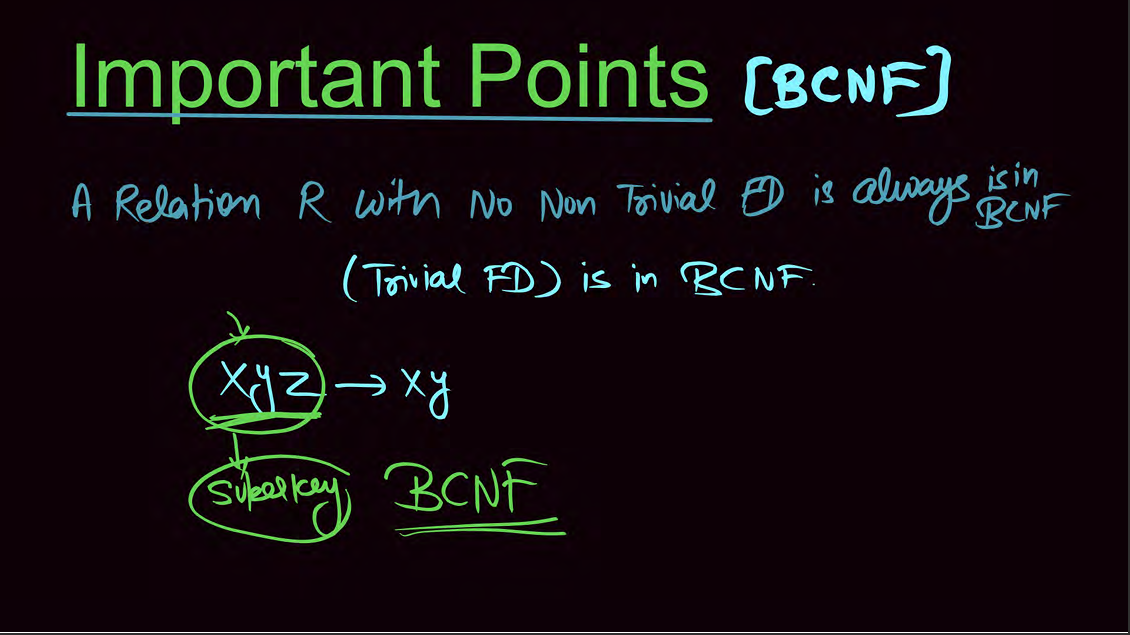 Important Points [BCNF]
A Relation R with No Non Trivial FD is always is in BCNF
(Trivial FD) is in BCNF.
xyz → xy
Superkey BCNF